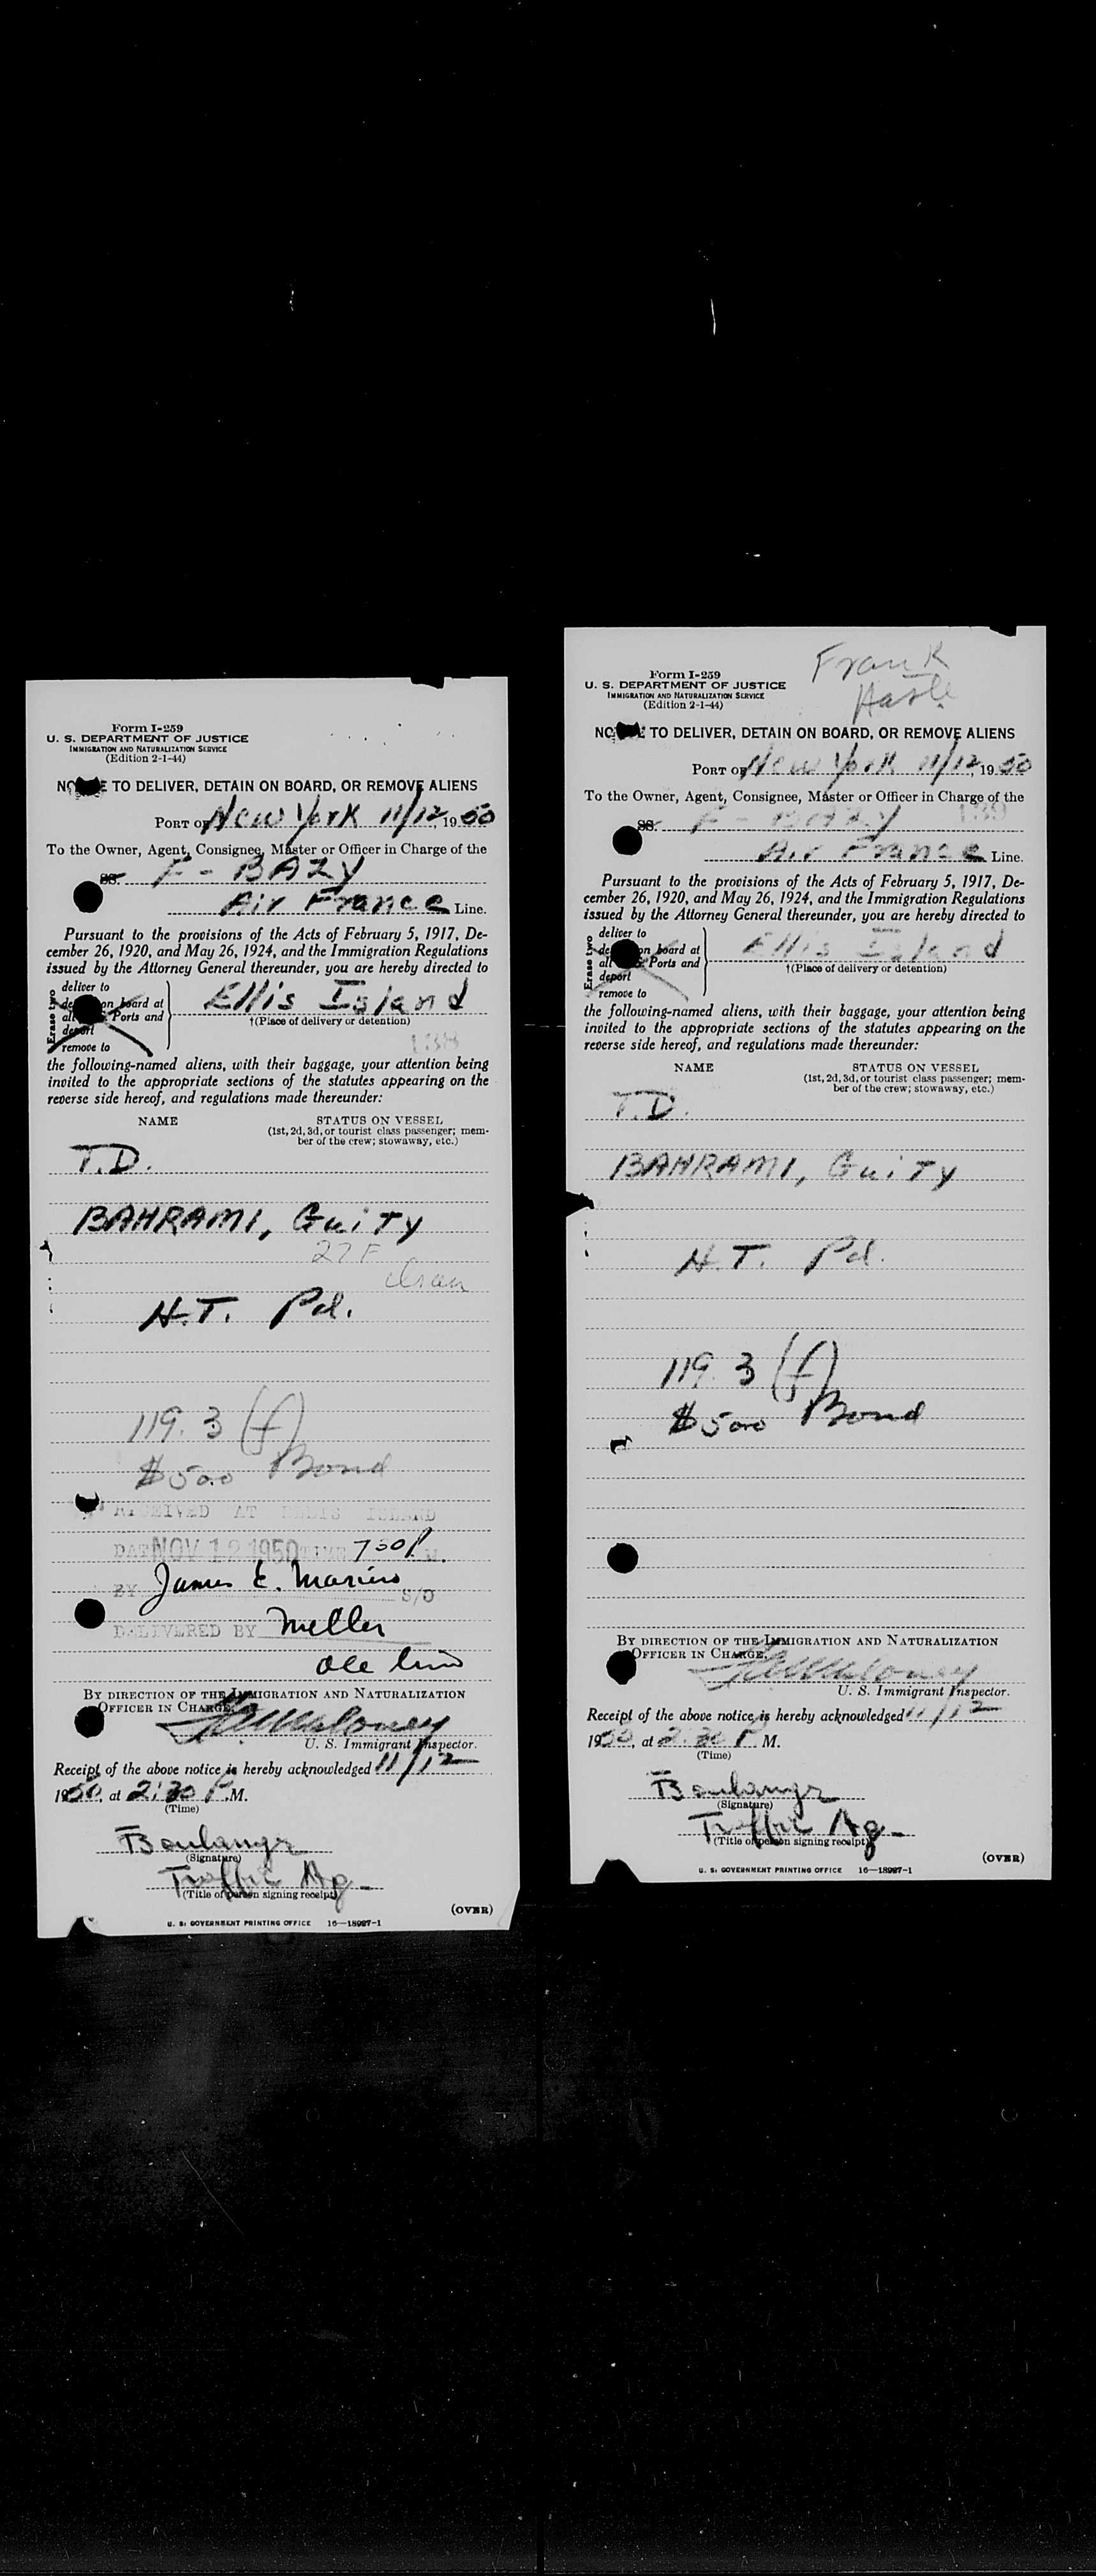 Form I-259
U. S. DEPARTMENT OF JUSTICE
IMMIGRATION AND NATURALIZATION SERVICE
(Edition 2-1-44)
TO DELIVER, DETAIN ON BOARD, OR REMOVE ALIENS
PORT OF New York 11/12, 1950
To the Owner, Agent, Consignee, Master or Officer in Charge of the
SS. F - BAZY
Air France Line.
Pursuant to the provisions of the Acts of February 5, 1917, De-
cember 26, 1920, and May 26, 1924, and the Immigration Regulations
issued by the Attorney General thereunder, you are hereby directed to
Erase two
deliver to
on board at
all Ports and
deport
remove to
Ellis Island
†(Place of delivery or detention)
138
the following-named aliens, with their baggage, your attention being
invited to the appropriate sections of the statutes appearing on the
reverse side hereof, and regulations made thereunder:
NAME STATUS ON VESSEL
(1st, 2d, 3d, or tourist class passenger; mem-
ber of the crew; stowaway, etc.)
T.D.
BAHRAMI, Guity
27 F
Iran
H.T. Pd.
119.3 (f)
$500 Bond
RECEIVED AT ELLIS ISLAND
DATE NOV 12 1950 TIME 730 P M.
BY James E. S/O
DELIVERED BY Meller
BY DIRECTION OF THE IMMIGRATION AND NATURALIZATION
OFFICER IN CHARGE.
Maloney
U. S. Immigrant Inspector.
Receipt of the above notice is hereby acknowledged 11/12
1950, at 2:30 P.M.
(Time)
Boulanger
(Signature)
Traffic Ag-
(Title of person signing receipt)
(OVER)
U. S. GOVERNMENT PRINTING OFFICE 16—18987-1
Frank
Form I-259
U. S. DEPARTMENT OF JUSTICE
IMMIGRATION AND NATURALIZATION SERVICE
(Edition 2-1-44)
TO DELIVER, DETAIN ON BOARD, OR REMOVE ALIENS
PORT OF New York 11/12, 1950
To the Owner, Agent, Consignee, Master or Officer in Charge of the
139
SS. F - BAZY
Air France Line.
Pursuant to the provisions of the Acts of February 5, 1917, De-
cember 26, 1920, and May 26, 1924, and the Immigration Regulations
issued by the Attorney General thereunder, you are hereby directed to
Erase two
deliver to
on board at
all Ports and
deport
remove to
Ellis Island
†(Place of delivery or detention)
the following-named aliens, with their baggage, your attention being
invited to the appropriate sections of the statutes appearing on the
reverse side hereof, and regulations made thereunder:
NAME STATUS ON VESSEL
(1st, 2d, 3d, or tourist class passenger; mem-
ber of the crew; stowaway, etc.)
T.D.
BAHRAMI, Guity
H.T. Pd.
119.3 (f)
$500 Bond
BY DIRECTION OF THE IMMIGRATION AND NATURALIZATION
OFFICER IN CHARGE.
Maloney
U. S. Immigrant Inspector.
Receipt of the above notice is hereby acknowledged 11/12
1950, at 2:30 P.M.
(Time)
Boulanger
(Signature)
Traffic Ag-
(Title of person signing receipt)
(OVER)
U. S. GOVERNMENT PRINTING OFFICE 16—18987-1